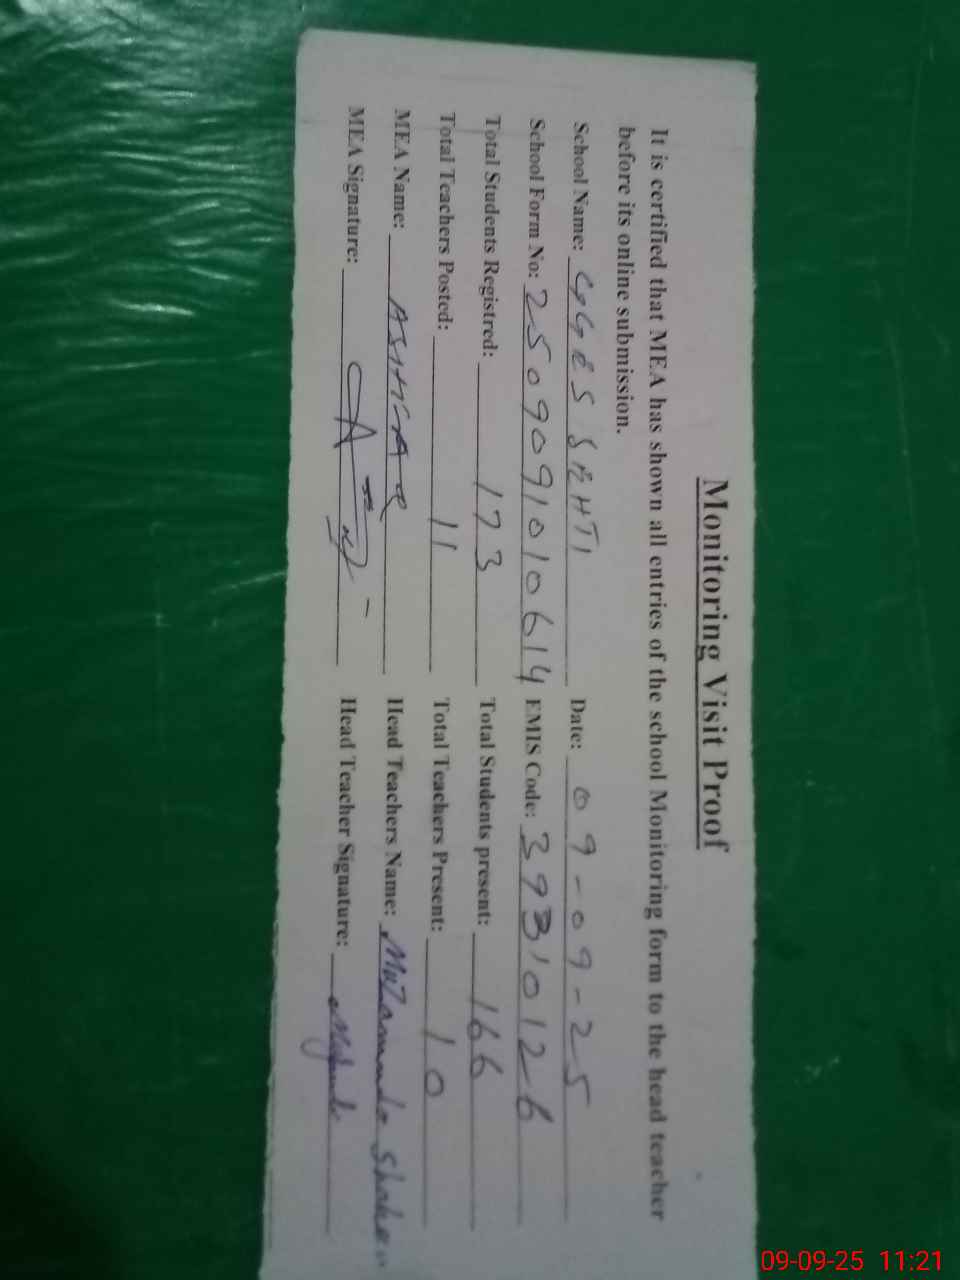 Monitoring Visit Proof
It is certified that MEA has shown all entries of the school Monitoring form to the head teacher
before its online submission.
School Name: GGES SEHTI Date: 09-09-25
School Form No: 2509091010614 EMIS Code: 39310126
Total Students Registred: 173 Total Students present: 166
Total Teachers Posted: 11 Total Teachers Present: 10
MEA Name: Head Teachers Name:
MEA Signature: Head Teacher Signature:
09-09-25 11:21